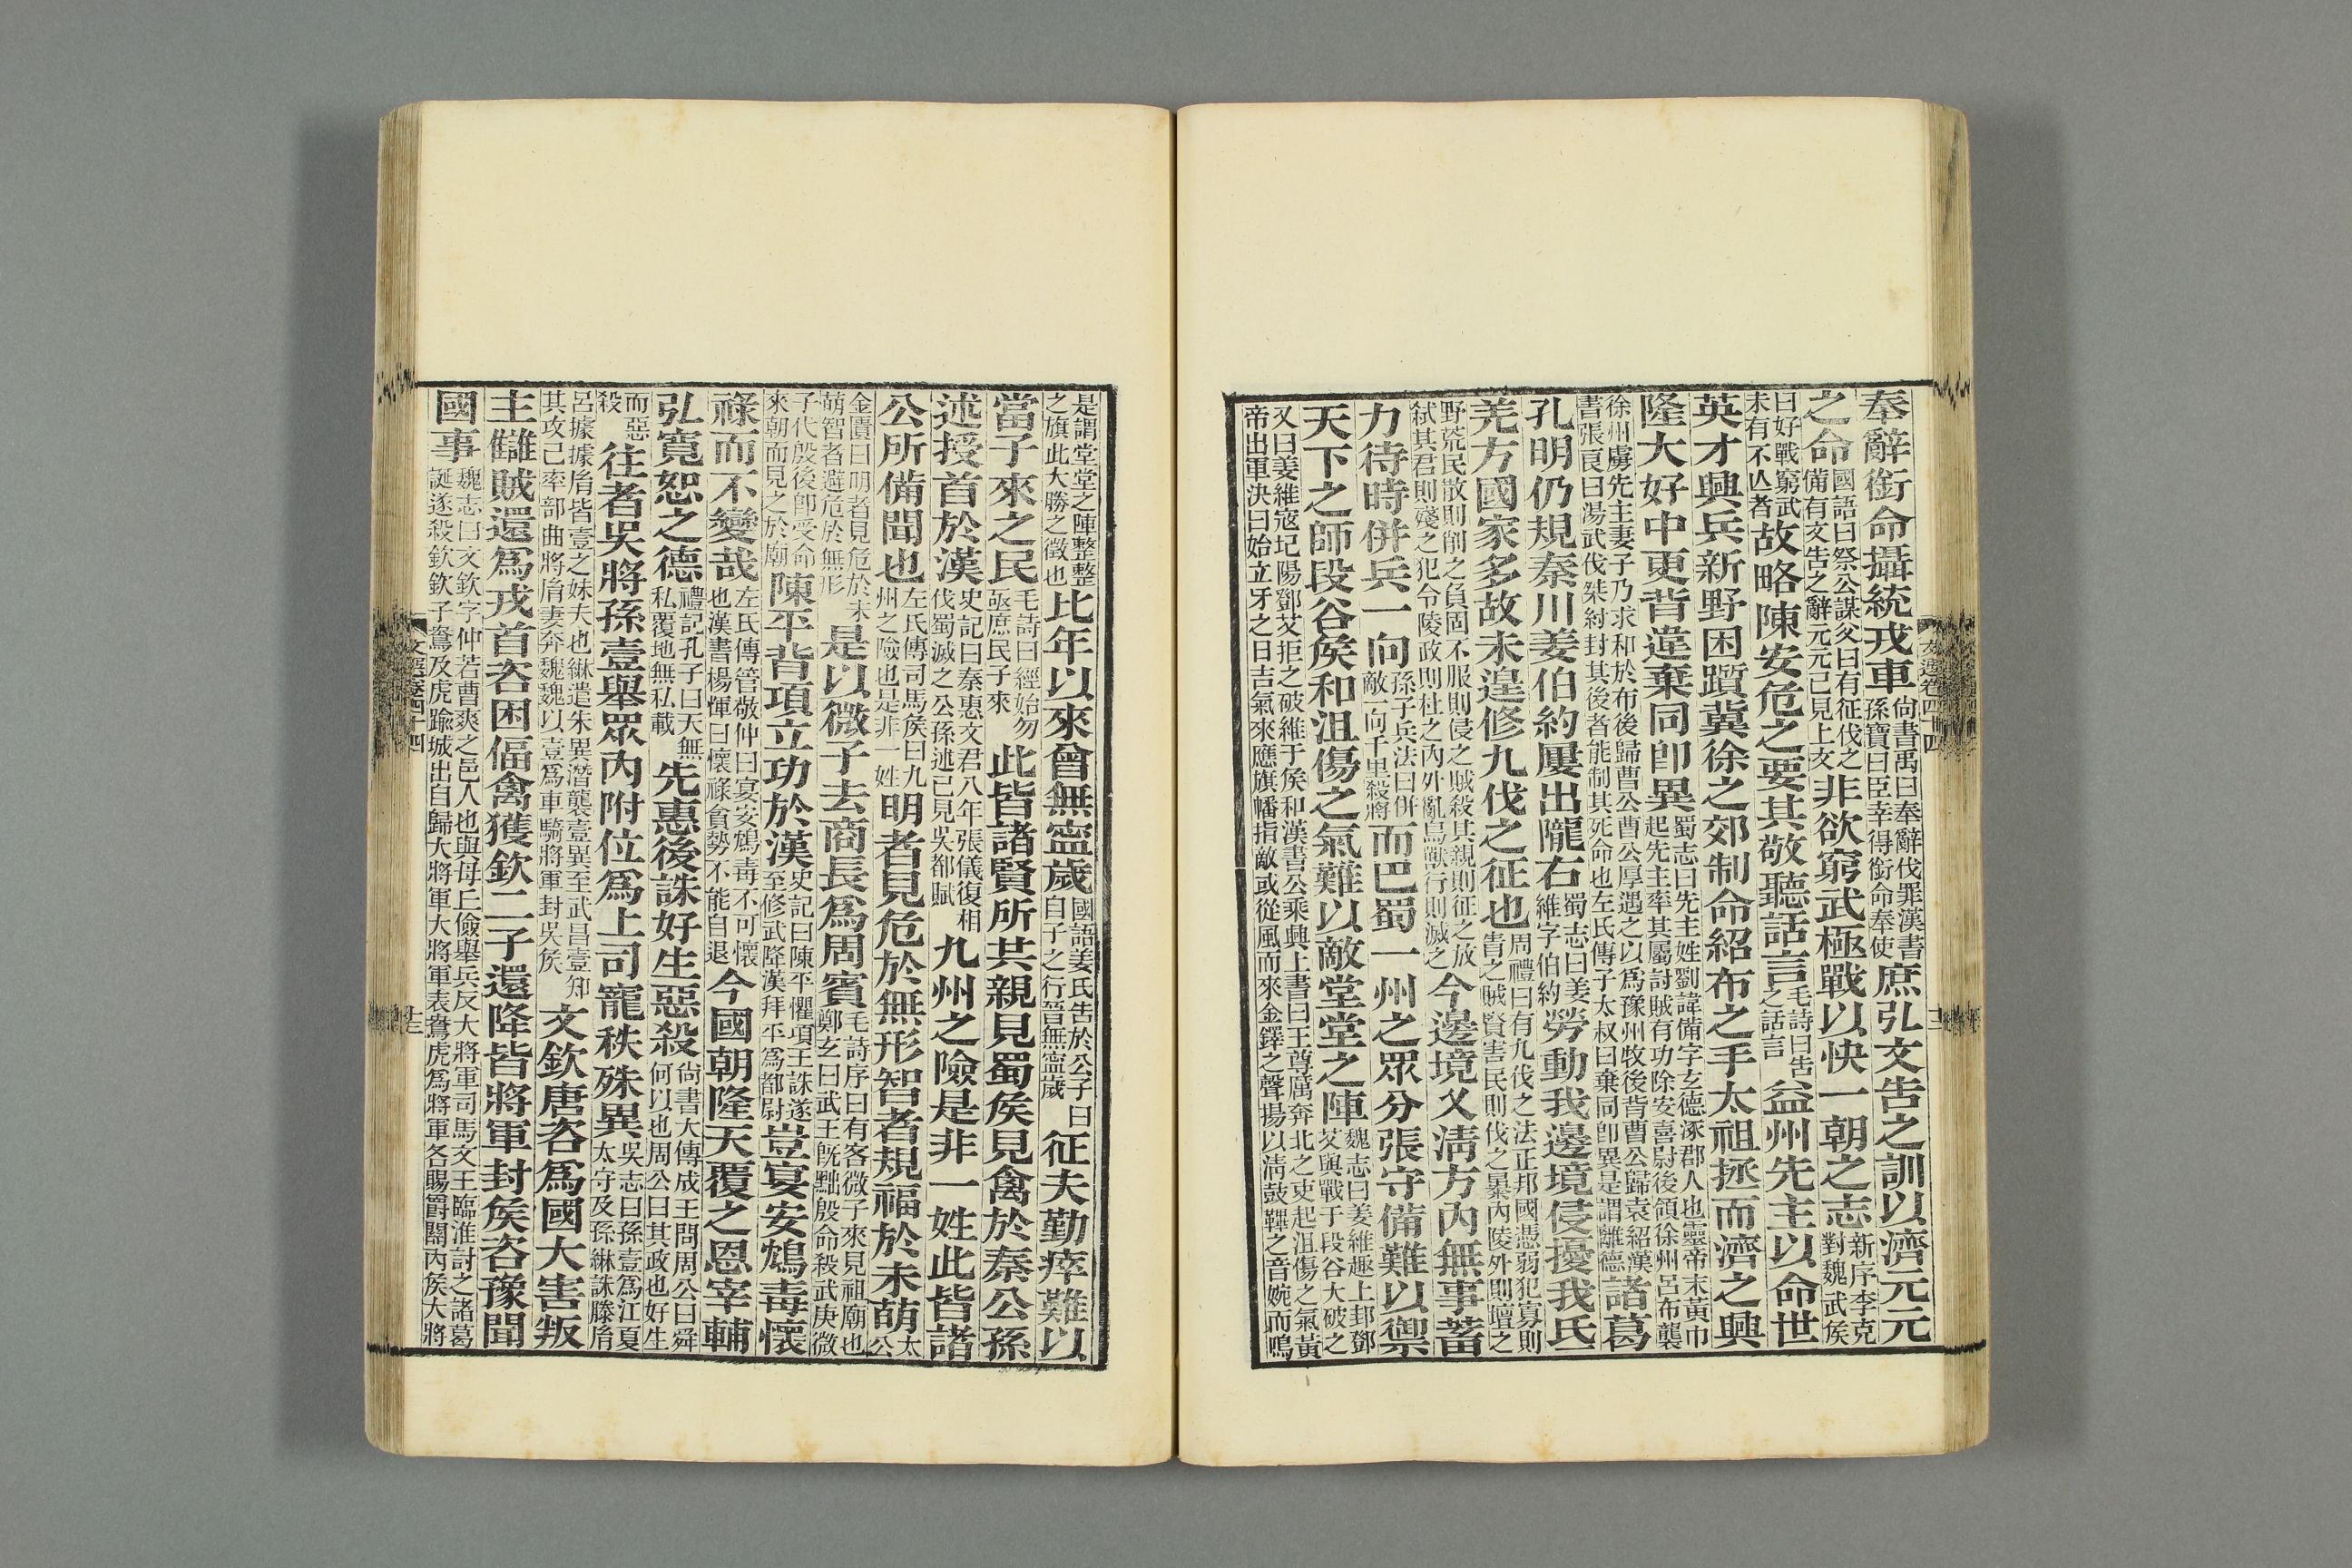 奉辭銜命攝統戎車尙書禹曰奉辭伐罪漢書孫寶曰臣幸得銜命奉使庶弘文告之訓以濟元元
之命國語曰祭公謀父曰有征伐之備有文告之辭元元已見上文非欲窮武極戰以快一朝之志新序李克對魏武侯
曰好戰窮武未有不亾者故略陳安危之要其敬聽話言毛詩曰告之話言益州先主以命世
英才興兵新野困躓冀徐之郊制命紹布之手太祖拯而濟之興
隆大好中更背違棄同卽異蜀志曰先主姓劉諱備字玄德涿郡人也靈帝末黃巾起先主率其屬討賊有功除安喜尉後領徐州呂布襲
徐州虜先主妻子乃求和於布後歸曹公曹公厚遇之以爲豫州牧後背曹公歸袁紹漢書張良曰湯武伐桀紂封其後者能制其死命也左氏傳子太叔曰棄同卽異是謂離德諸葛
孔明仍規秦川姜伯約屢出隴右蜀志曰姜維字伯約勞動我邊境侵擾我氐
羌方國家多故未遑修九伐之征也周禮曰有九伐之法正邦國憑弱犯寡則眚之賊賢害民則伐之暴內陵外則壇之
野荒民散則削之負固不服則侵之賊殺其親則征之放弑其君則殘之犯令陵政則杜之內外亂鳥獸行則滅之今邊境乂清方內無事蓄
力待時併兵一向孫子兵法曰併敵一向千里殺將而巴蜀一州之眾分張守備難以禦
天下之師段谷侯和沮傷之氣難以敵堂堂之陣魏志曰姜維趣上邽鄧艾與戰于段谷大破之
又曰姜維寇圮陽鄧艾拒之破維于侯和漢書公乘興上書曰王尊厲奔北之吏起沮傷之氣黃帝出軍決曰始立牙之日吉氣來應旗幡指敵或從風而來金鐸之聲揚以清鼓鞞之音婉而鳴
文選卷四十四
十二
是謂堂堂之陣整整之旗此大勝之徵也比年以來曾無寧歲國語姜氏告於公子曰自子之行晉無寧歲征夫勤瘁難以
當子來之民毛詩曰經始勿亟庶民子來此皆諸賢所共親見蜀侯見禽於秦公孫
述授首於漢史記曰秦惠文君八年張儀復相伐蜀滅之公孫述已見吳都賦九州之險是非一姓此皆諸
公所備聞也左氏傳司馬侯曰九州之險也是非一姓明者見危於無形智者規福於未萌太公
金匱曰明者見危於未萌智者避危於無形是以微子去商長爲周賓毛詩序曰有客微子來見祖廟也鄭玄曰武王旣黜殷命殺武庚微
子代殷後卽受命來朝而見之於廟陳平背項立功於漢史記曰陳平懼項王誅遂至修武降漢拜平爲都尉豈宴安鴆毒懷
祿而不變哉左氏傳管敬仲曰宴安鴆毒不可懷也漢書楊惲曰懷祿貪勢不能自退今國朝隆天覆之恩宰輔
弘寬恕之德禮記孔子曰天無私覆地無私載先惠後誅好生惡殺尙書大傳成王問周公曰舜何以也周公曰其政也好生
而惡殺往者吳將孫壹舉眾內附位爲上司寵秩殊異吳志曰孫壹爲江夏太守及孫綝誅滕胤
呂據據胤皆壹之妹夫也綝遣朱異潛襲壹異至武昌壹知其攻己率部曲將胤妻奔魏魏以壹爲車騎將軍封吳侯文欽唐咨爲國大害叛
主讎賊還爲戎首咨困偪禽獲欽二子還降皆將軍封侯咨豫聞
國事魏志曰文欽字仲若曹爽之邑人也與母丘儉舉兵反大將軍司馬文王臨淮討之諸葛誕遂殺欽欽子鴦及虎踰城出自歸大將軍大將軍表鴦虎爲將軍各賜爵關內侯大將
文選卷四十四
十三